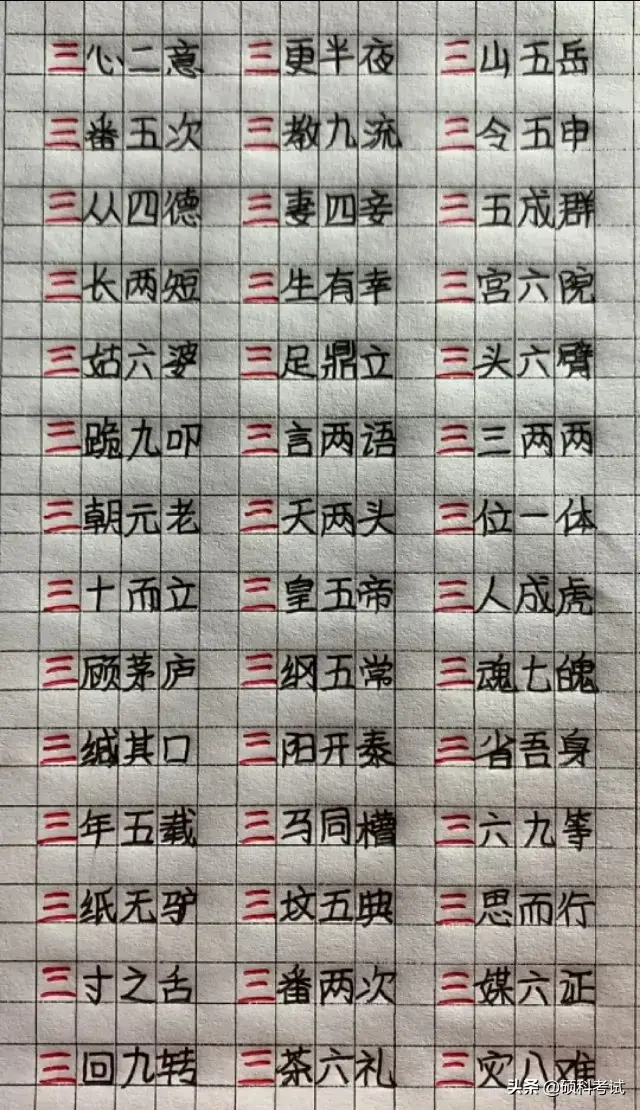 三心二意 三更半夜 三山五岳
三番五次 三教九流 三令五申
三从四德 三妻四妾 三五成群
三长两短 三生有幸 三宫六院
三姑六婆 三足鼎立 三头六臂
三跪九叩 三言两语 三三两两
三朝元老 三天两头 三位一体
三十而立 三皇五帝 三人成虎
三顾茅庐 三纲五常 三魂七魄
三缄其口 三阳开泰 三省吾身
三年五载 三马同槽 三六九等
三纸无驴 三坟五典 三思而行
三寸之舌 三番两次 三媒六证
三回九转 三茶六礼 三灾八难
头条 @硕科考试